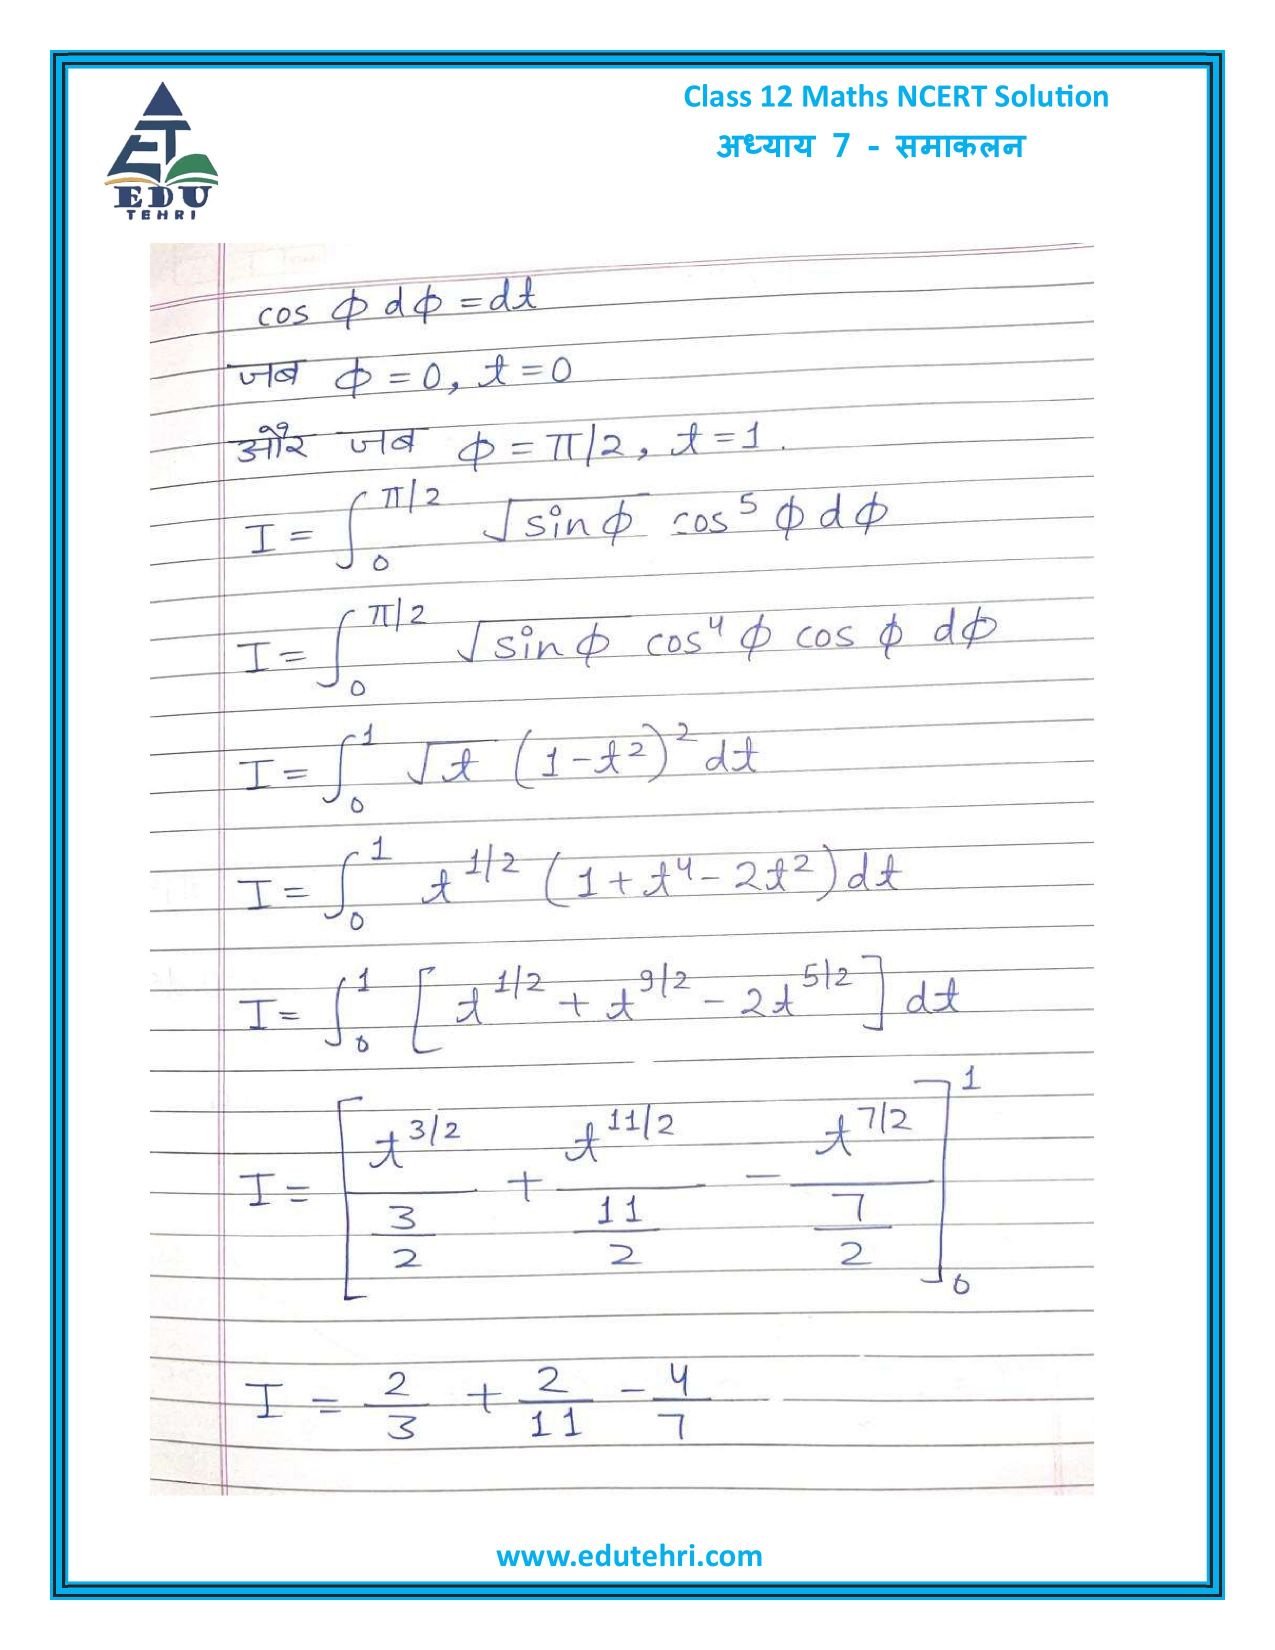 Class 12 Maths NCERT Solution
अध्याय 7 - समाकलन
EDU
TEHRI
cos ϕ dϕ = dt
जब ϕ = 0, t = 0
और जब ϕ = π/2, t = 1.
I = ∫₀^{π/2} √(sin ϕ) cos⁵ ϕ dϕ
I = ∫₀^{π/2} √(sin ϕ) cos⁴ ϕ cos ϕ dϕ
I = ∫₀¹ √t (1 - t²)² dt
I = ∫₀¹ t^{1/2} (1 + t⁴ - 2t²) dt
I = ∫₀¹ [t^{1/2} + t^{9/2} - 2t^{5/2}] dt
I = [t^{3/2}/(3/2) + t^{11/2}/(11/2) - t^{7/2}/(7/2)]₀¹
I = 2/3 + 2/11 - 4/7
www.edutehri.com